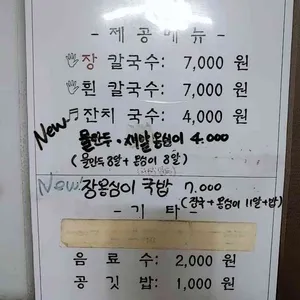 - 제 공 메 뉴 -
장 칼국수: 7,000 원
흰 칼국수: 7,000 원
잔치 국수: 4,000 원
New 물만두 · 새알 옹심이 4.000
(물만두 8알 + 옹심이 8알)
New! 장옹심이 국밥 7.000
(장국 + 옹심이 11알 + 밥)
- 기 타 -
음 료 수: 2,000 원
공 깃 밥: 1,000 원